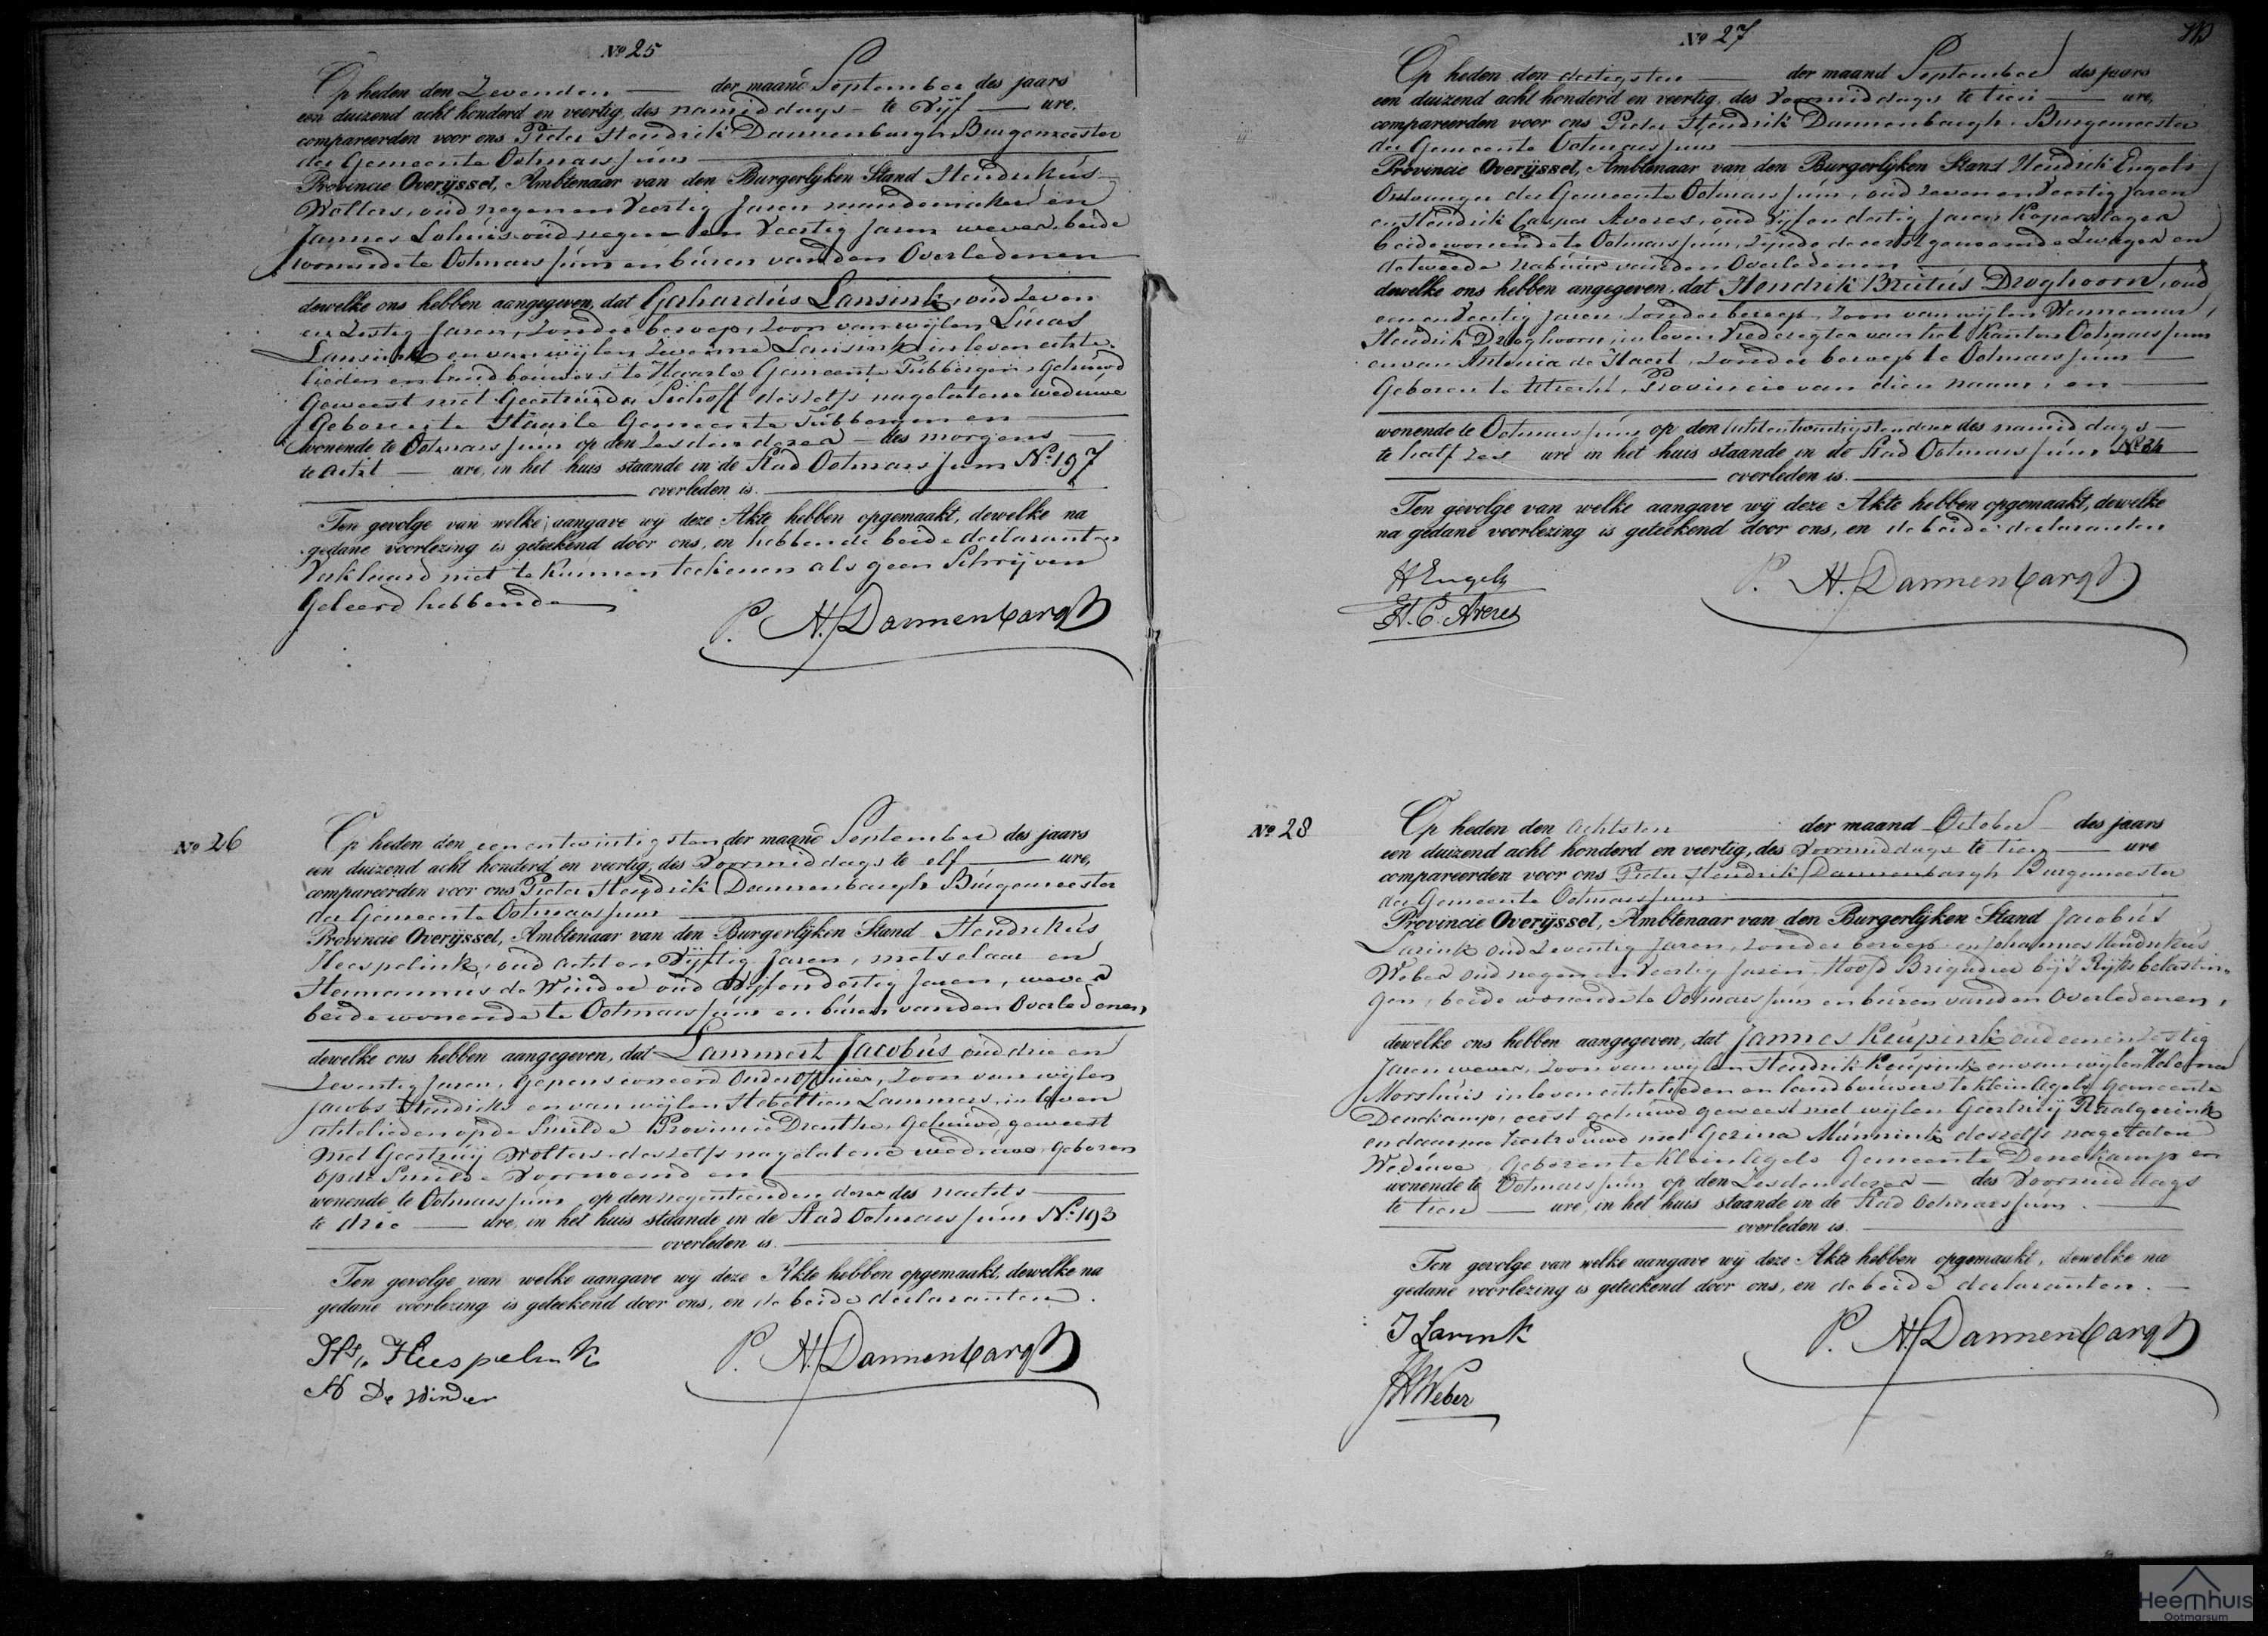 Nº 25
Op heden den Zevenden der maand September des jaars
een duizend acht honderd en veertig, des namiddags te Vijf ure,
compareerden voor ons Pieter Hendrik Dannenbargh Burgemeester
der Gemeente Ootmarssum
Provincie Overijssel, Ambtenaar van den Burgerlijken Stand Hendrikus
Wolters, oud negen en Veertig Jaren mandemaker en
Jannes Lohuis oud negen en Veertig Jaren wever, beide
wonende te Ootmarssum en buren van den Overledenen
dewelke ons hebben aangegeven, dat Gerhardus Lansink, oud Zeven
en Zestig Jaren, Zonder beroep, Zoon van wijlen Lucas
Lansink en van wijlen Lansink in leven echte
lieden en landbouwers te Haarle Gemeente Tubbergen, Gehuwd
Geweest met Geertruida deszelfs nagelatene weduwe
Geboren te Haarle Gemeente Tubbergen en
wonende te Ootmarssum op den Zesden dezer des morgens
te acht ure, in het huis staande in de Stad Ootmarssum Nº 197
overleden is.
Ten gevolge van welke aangave wij deze Akte hebben opgemaakt, dewelke na
gedane voorlezing is geteekend door ons, en hebbende beide declaranten
Verklaard niet te kunnen teekenen als geen Schrijven
Geleerd hebbende
P. H. Dannenbargh
Nº 26
Op heden den een en twintigsten der maand September des jaars
een duizend acht honderd en veertig, des Voormiddags te elf ure,
compareerden voor ons Pieter Hendrik Dannenbargh Burgemeester
der Gemeente Ootmarssum
Provincie Overijssel, Ambtenaar van den Burgerlijken Stand Hendrikus
Heespelink, oud acht en Vijftig Jaren, metselaar en
Hermannus de Winder oud Vijf en dertig Jaren, wever
beide wonende te Ootmarssum en buren van den Overledenen,
dewelke ons hebben aangegeven, dat Lammert Jacobus oud drie en
Zeventig Jaren, Gepensioneerd Onderofficier, Zoon van wijlen
Jacobs Hendriks en van wijlen Lammers, in leven
echtelieden op de Smilde Provincie Drenthe, Gehuwd geweest
met Geertruij Wolters deszelfs nagelatene weduwe, Geboren
op de Smilde Voornoemd en
wonende te Ootmarssum op den negentienden dezer des nachts
te drie ure, in het huis staande in de Stad Ootmarssum Nº 193
overleden is.
Ten gevolge van welke aangave wij deze Akte hebben opgemaakt, dewelke na
gedane voorlezing is geteekend door ons, en de beide declaranten.
Hs Heespelink
H De Winder
P. H. Dannenbargh
Nº 27
Op heden den dertigsten der maand September des jaars
een duizend acht honderd en veertig, des Voormiddags te tien ure,
compareerden voor ons Pieter Hendrik Dannenbargh Burgemeester
der Gemeente Ootmarssum
Provincie Overijssel, Ambtenaar van den Burgerlijken Stand Hendrik Engels
Ontvanger der Gemeente Ootmarssum, oud Zeven en Veertig Jaren
en Hendrik Casper Averes, oud Vijf en dertig Jaren Koperslager
beide wonende te Ootmarssum, Zijnde de eerstgenoemde Zwager en
de tweede nabuur van den Overledenen
dewelke ons hebben angegeven, dat Hendrik Brutus Droghoorn, oud
een en Veertig Jaren Zonder beroep, Zoon van wijlen Wennemar
Hendrik Droghoorn, in leven Vrederegter van het Kanton Ootmarssum
en van Antonia de Haert, Zonder beroep te Ootmarssum
Geboren te Utrecht, Provincie van dien naam, en
wonende te Ootmarssum op den Achtentwintigsten dezer des namiddags
te half Zes ure in het huis staande in de Stad Ootmarssum Nº 34
overleden is.
Ten gevolge van welke aangave wij deze Akte hebben opgemaakt, dewelke
na gedane voorlezing is geteekend door ons, en de beide declaranten
H Engels
H. C. Averes
P. H. Dannenbargh
Nº 28
Op heden den achtsten der maand October des jaars
een duizend acht honderd en veertig, des Voormiddags te tien ure
compareerden voor ons Pieter Hendrik Dannenbargh Burgemeester
der Gemeente Ootmarssum
Provincie Overijssel, Ambtenaar van den Burgerlijken Stand Jacobus
Larink oud Zeventig Jaren, Zonder beroep en Johannes Hendrikus
Weber oud negen en Veertig Jaren Hoofd Brigadier bij 's Rijks belastin
gen, beide wonende te Ootmarssum en buren van den Overledenen,
dewelke ons hebben aangegeven, dat Jannes Keupink oud een en Zestig
Jaren wever, Zoon van wijlen Hendrik Keupink en van wijlen Helena
Morshuis in leven echtelieden en landbouwers te Klein Agelo Gemeente
Denekamp, eerst gehuwd geweest met wijlen Geertruij
en daarna Hertrouwd met Gezina Munnink deszelfs nagelaten
Weduwe, Geboren te Klein Agelo Gemeente Denekamp en
wonende te Ootmarssum op den Zesden dezer des Voormiddags
te tien ure, in het huis staande in de Stad Ootmarssum.
overleden is.
Ten gevolge van welke aangave wij deze Akte hebben opgemaakt, dewelke na
gedane voorlezing is geteekend door ons, en de beide declaranten.
J Larink
JH Weber
P. H. Dannenbargh
Heemhuis
Ootmarsum